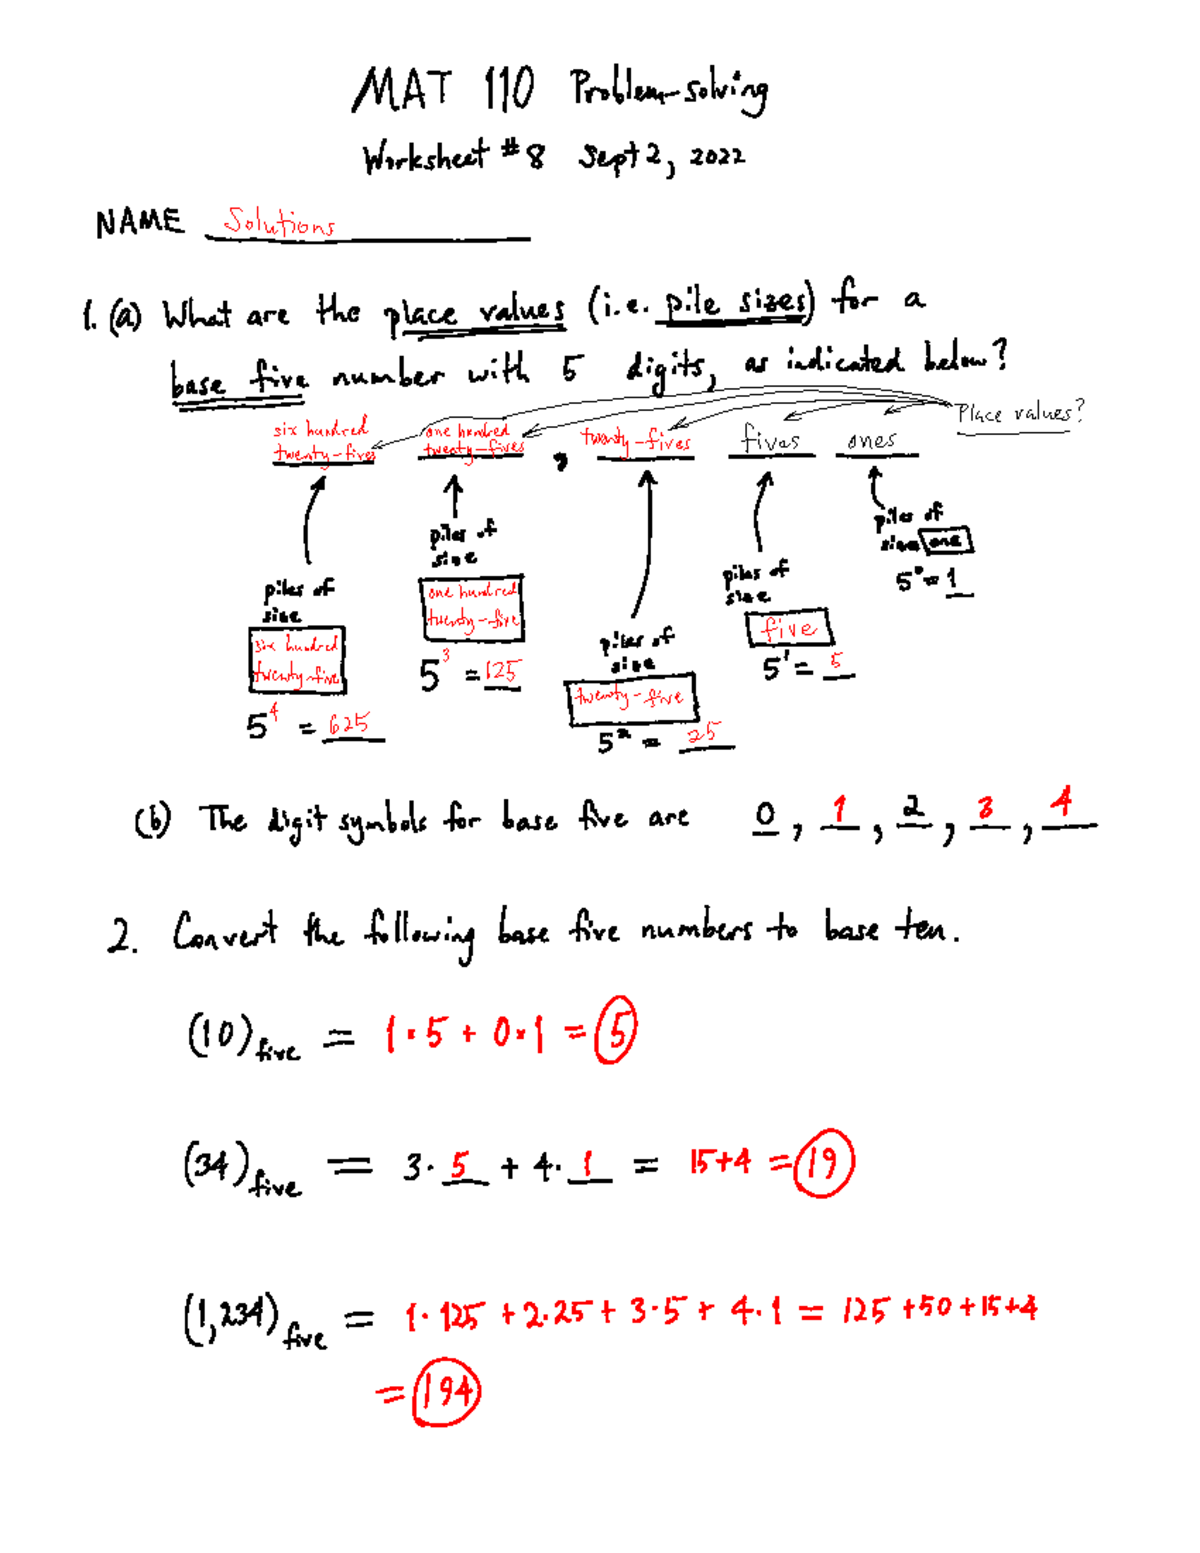 MAT 110 Problem-solving
Worksheet #8 Sept 2, 2022
NAME Solutions
1. (a) What are the place values (i.e. pile sizes) for a
base five number with 5 digits, as indicated below?
Place values?
six hundred twenty-fives
one hundred twenty-fives
,
twenty-fives
fives
ones
piles of size six hundred twenty-five
5⁴ = 625
piles of size one hundred twenty-five
5³ = 125
piles of size twenty-five
5² = 25
piles of size five
5¹ = 5
piles of size one
5⁰ = 1
(b) The digit symbols for base five are 0, 1, 2, 3, 4
2. Convert the following base five numbers to base ten.
(10)five = 1·5 + 0·1 = 5
(34)five = 3·5 + 4·1 = 15+4 = 19
(1,234)five = 1·125 + 2·25 + 3·5 + 4·1 = 125 +50 +15+4
= 194